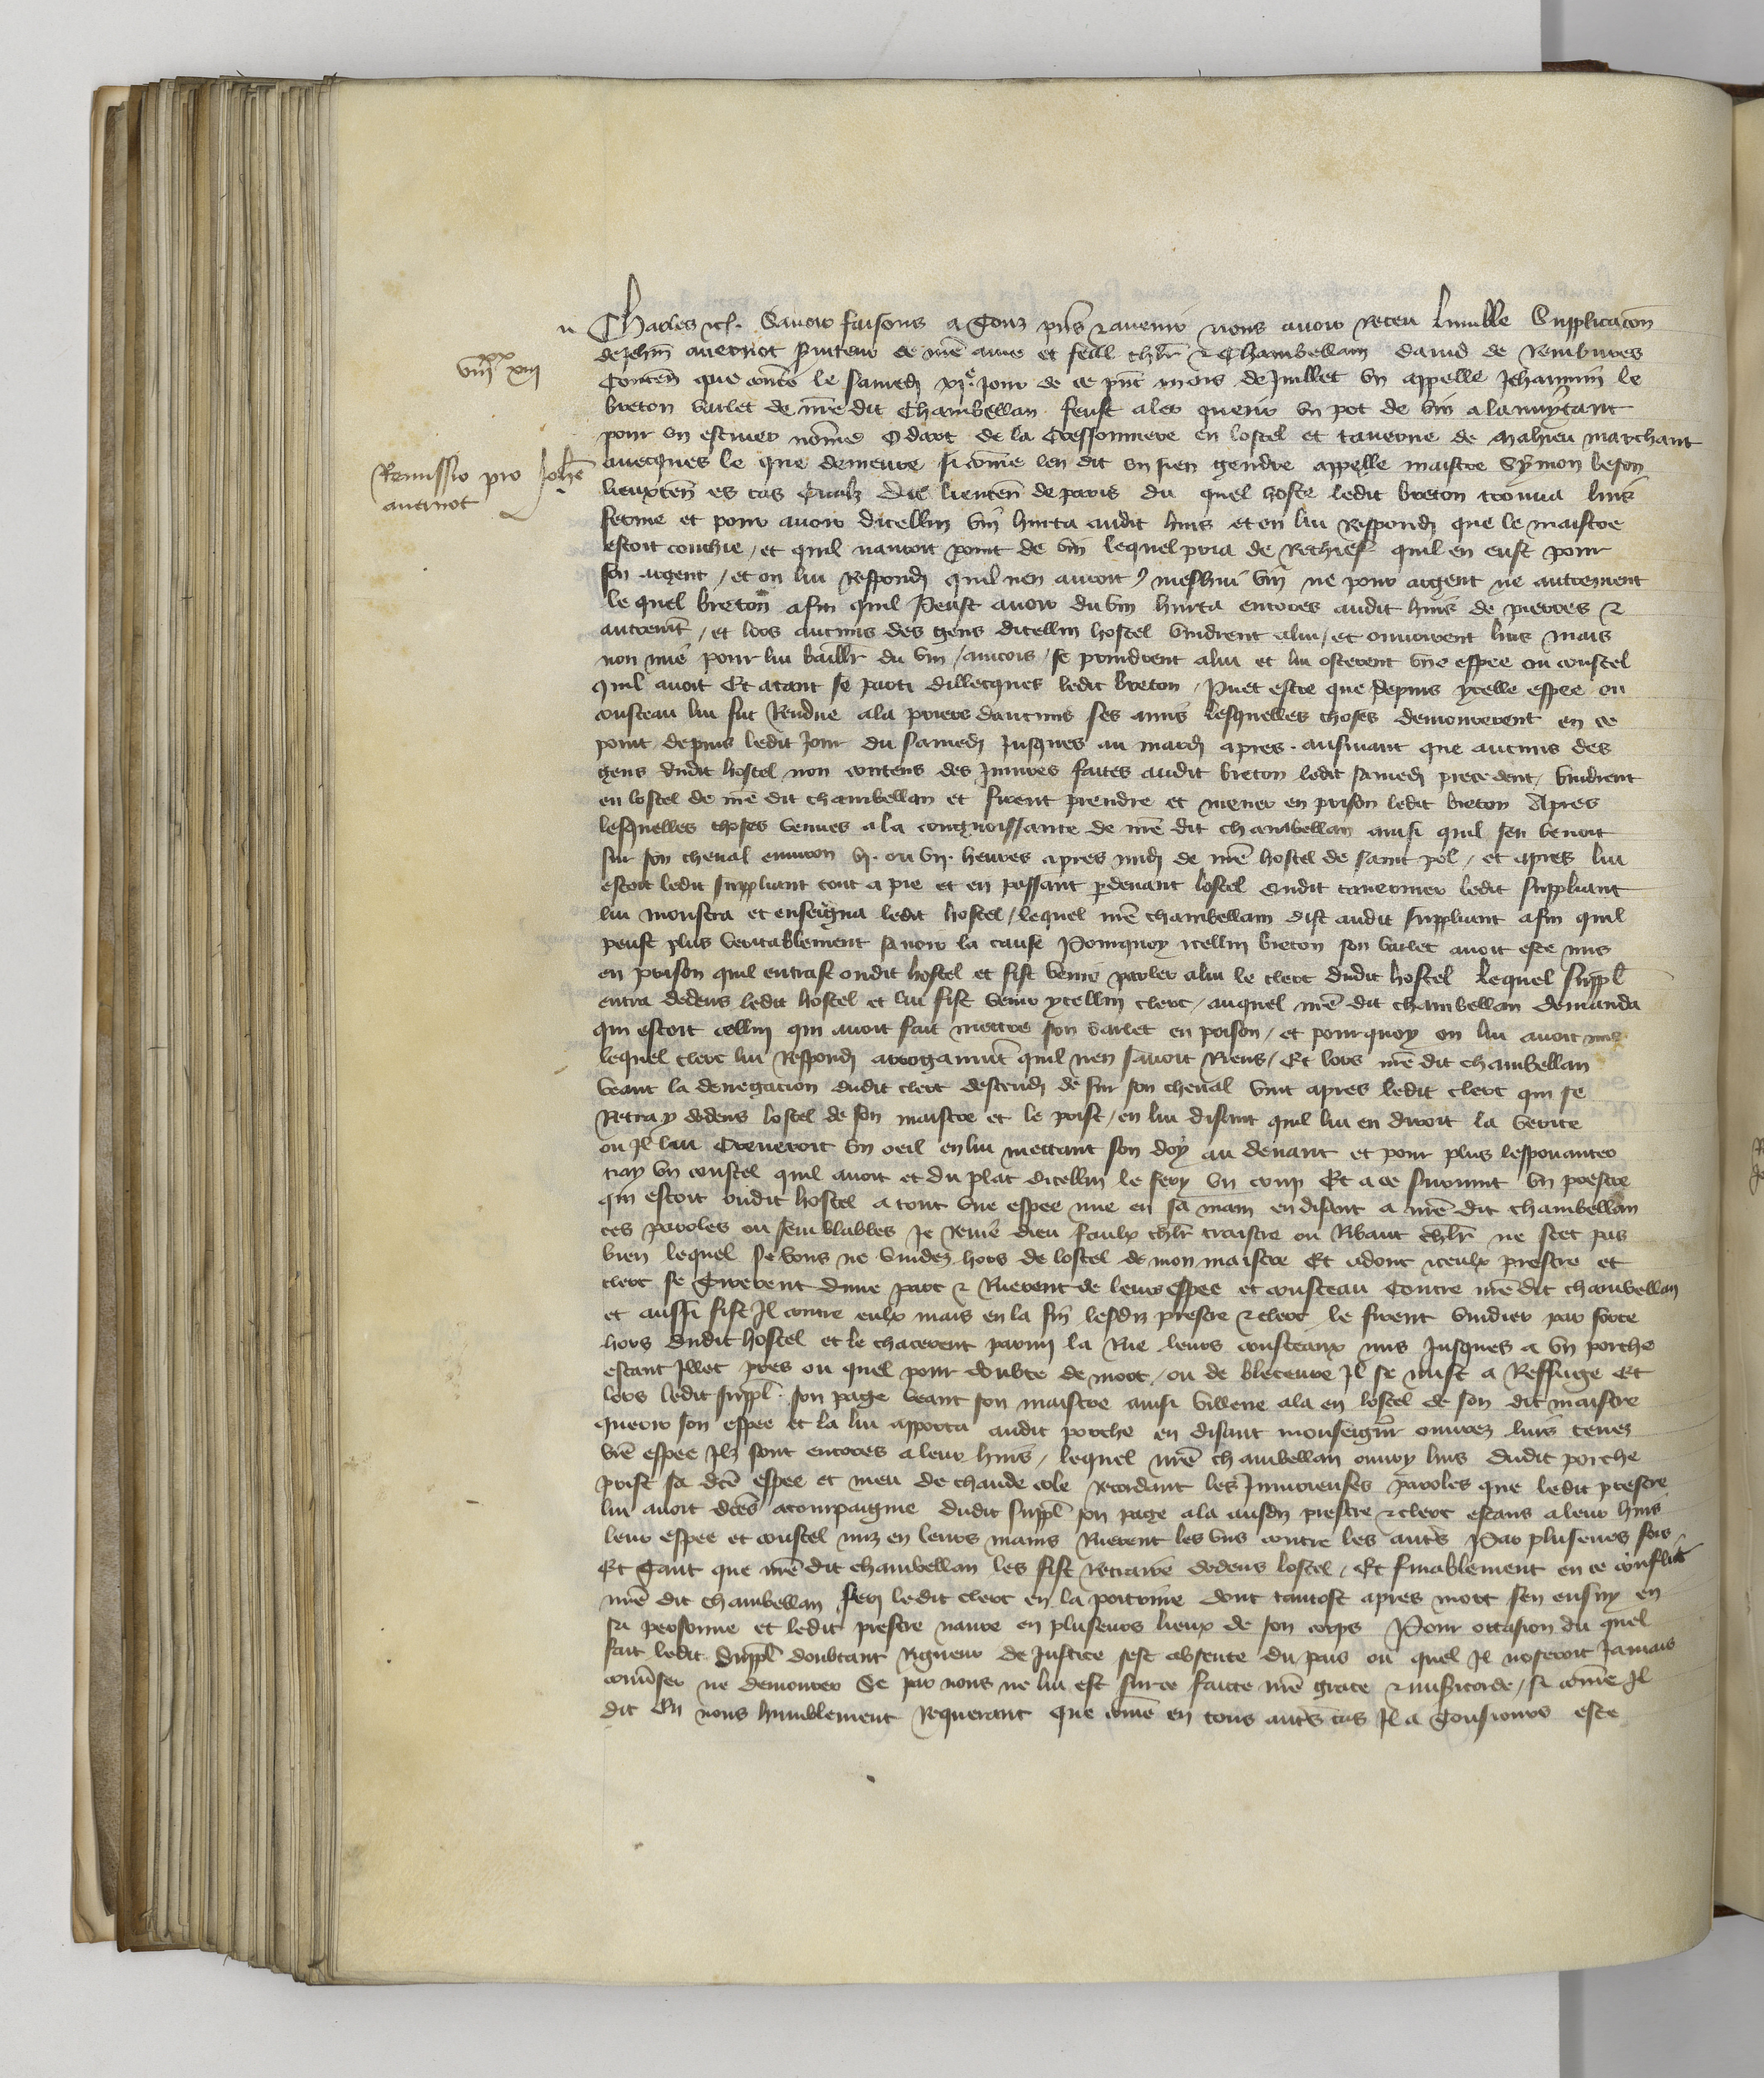 n Charles etc. Savoir faisons a Touz pñs et avenir nous avoir receu lumble Supplicacōn
viiixx xiij
de Jehñ avernot serviteur de nrē ame et feal chlr̄ et Chambellam david de Rembures
Conteñ que cōme le samedi xje. jour de ce pñt mois de Juillet vn appelle Jehannin le
breton varlet de nrē dit Chambellan feust aler querir vn pot de vin a lanuytant
pour vn escuier nōme Odart de la Cressonniere en lostel et taverne de Mahieu marchant
Remissio pro Johē
avernot
avecques le que demeure si cōme len dit vn sien gendre appelle maistre Symon beson
lieuxteñ es cas du lieuteñ de paris du quel hoste ledit breton trouva luis
ferme et pour avoir dicellui vin hurta audit huis et en lui respondi que le maistre
estoit couchie / et quil navoit point de vin lequel pria de rechief quil en eust pour
son argent / et on lui respondi quil nen auroit meshui vin ne pour argent ne autrement
le quel breton afin quil Peust avoir du vin hurta encores audit huis de pierres et
autremt̄ / et lors aucuns des gens dicellui hostel vindrent a lui / et ouvrirent luis mais
non mie pour lui baillr du vin / aincois / se prindrent a lui et lui osterent vne espee ou coustel
quil avoit Et atant se parti dillecques ledit breton / Puet estre que depuis ycelle espee ou
cousteau lui fut Rendue a la priere daucuns ses amis lesquelles choses demourerent en ce
point depuis ledit Jour du samedi Jusques au mardi apres. ensuivant que aucuns des
gens dudit hostel non contens des Injures faites audit breton ledit samedi precedent / vindrent
en lostel de nrē dit chambellan et firent prendre et mener en prison ledit breton Apres
lesquelles choses venues a la congnoissance de nrē dit chambellan ainsi quil sen venoit
sur son cheval environ vj. ou vij. heures apres midi de nrē hostel de saint pol / et apres lui
estoit ledit suppliant tout a pie et en passant p devant lostel dudit tavernier ledit suppliant
lui monstra et enseigna ledit hostel / lequel nrē chambellam dist audit suppliant afin quil
peust plus veritablement savoir la cause Pourquoy icellui breton son varlet avoit este mis
en prison quil entrast oudit hostel et fist venir parler a lui le clerc dudit hostel lequel suppl̄
entra dedens ledit hostel et lui fist venir ycellui clerc / auquel nrē dit chambellan demanda
qui estoit cellui qui avoit fait mettre son varlet en prison / et pourquoy on lui avoit mis
lequel clerc lui respondi arrogāmnt quil nen savoit Riens / Et lors nrē dit chambellan
veant la denegacion dudit clerc descendi de sur son cheval vint apres ledit clerc qui se
Retray dedens lostel de son maistre et le prist / en lui disant quil lui en diroit la verite
ou Il lui Creveroit vn oeil en lui mettant son doy au devant et pour plus lespouanter
tray vn coustel quil avoit et du plat dicellui le fery vn coup Et a ce survint vn prestre
qui estoit oudit hostel a tout vne espee nue en sa main en disant a nrē dit chambellan
ces paroles ou semblables Je renie dieu faulx chlr̄ traistre ou Ribaut chlr̄ ne scet pas
bien lequel se vous ne vuidez hors de lostel de mon maistre Et adonc iceulx prestre et
clerc se Tirerent dune part et Ruerent de leur espee et cousteau Contre nrē dit chambellan
et aussi fist Il contre eulx mais en la fin lesdiz prestre et clerc le firent vuidier par force
hors dudit hostel et le chacerent parmi la Rue leurs cousteaux nus Jusques a vn porche
estant Illec pres ou quel pour doubte de mort / ou de bleceure Il se mist a Reffuge Et
lors ledit suppl̄. son page veant son maistre ainsi villene ala en lostel de son dit maistre
querir son espee et la lui apporta audit porche en disant monseigneur ouvrez luis tenez
vrē espee Ilz sont encores a leur huis / lequel nrē chambellan ouvry luis dudit porche
prist sa dcē espee et meu de chaude cole recordant les Injurieuses paroles que ledit prestre
lui avoit dcēs acompaigne dudit suppl̄ son page ala ausdiz prestre et clerc estans a leur huis
leur espee et coustel nuz en leurs mains Ruerent les vns contre les autr̄s Par pluseurs fois
Et Tant que nrē dit chambellan les fist retraire dedens lostel / Et finablement en ce conflict
nrē dit chambellan feri ledit clerc en la poitrine dont tantost apres mort sen ensuy en
sa personne et ledit prestre navre en pluseurs lieux de son corps Pour occasion du quel
fait ledit Suppl̄ doubtant rigueur de Justice sest absente du pais ou quel Il noseroit Jamais
conv̄ser ne demourer Se par nous ne lui est sur ce faicte nrē grace et misericorde / si cōme Il
dit En nous humblement requerant que cōme en tous autr̄s cas Il a Tousjours este